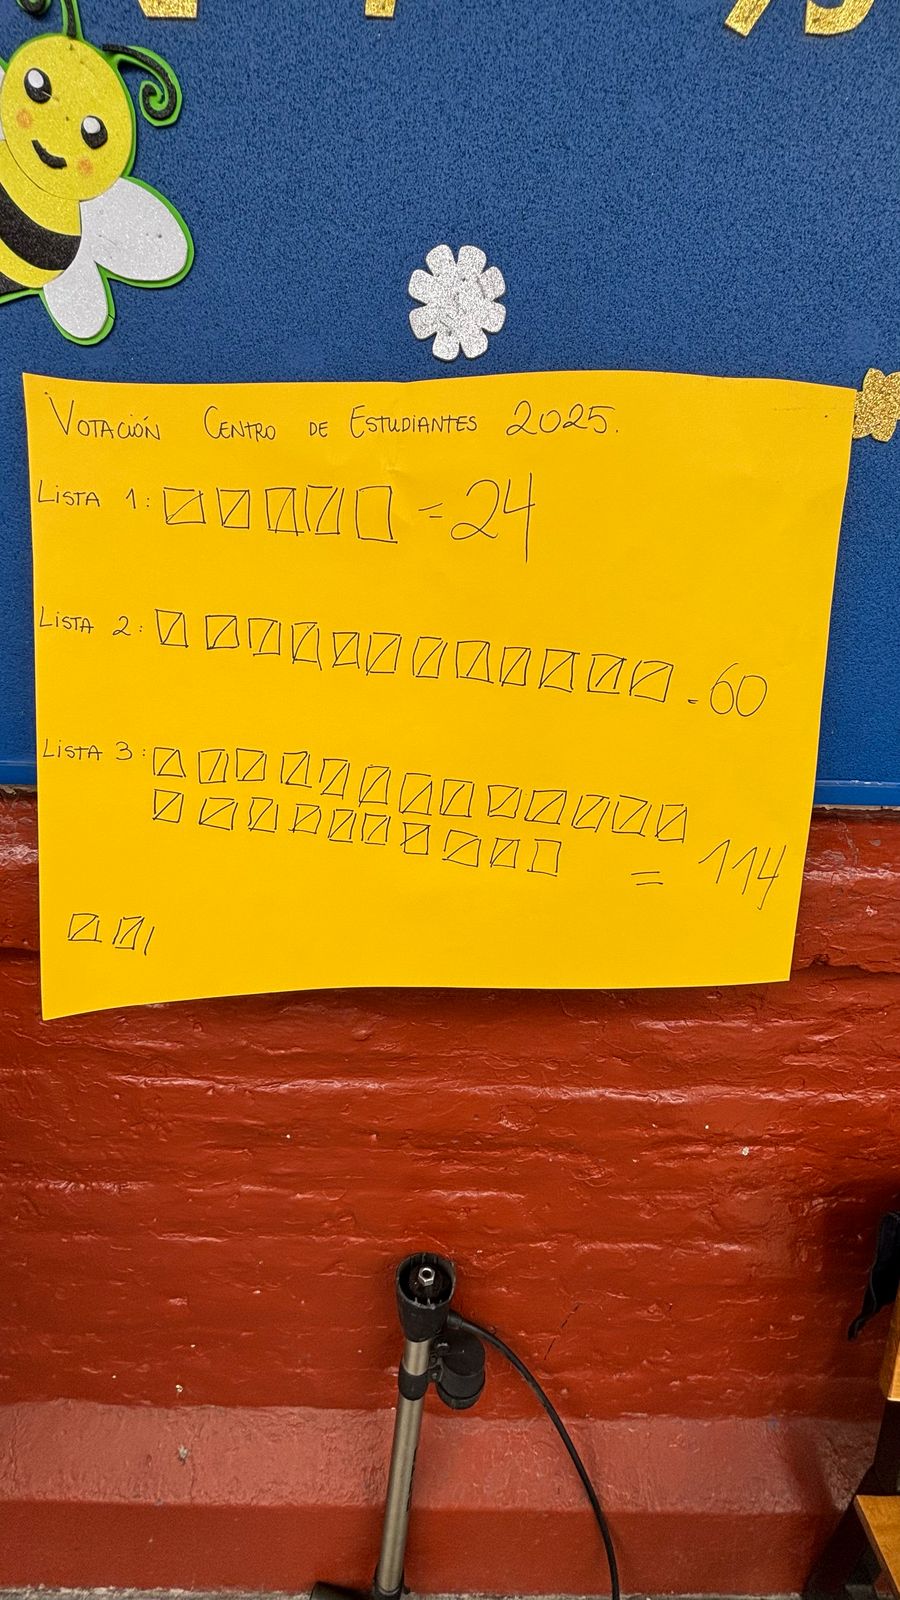 Votación Centro de Estudiantes 2025.
Lista 1: = 24
Lista 2: = 60
Lista 3:
= 114